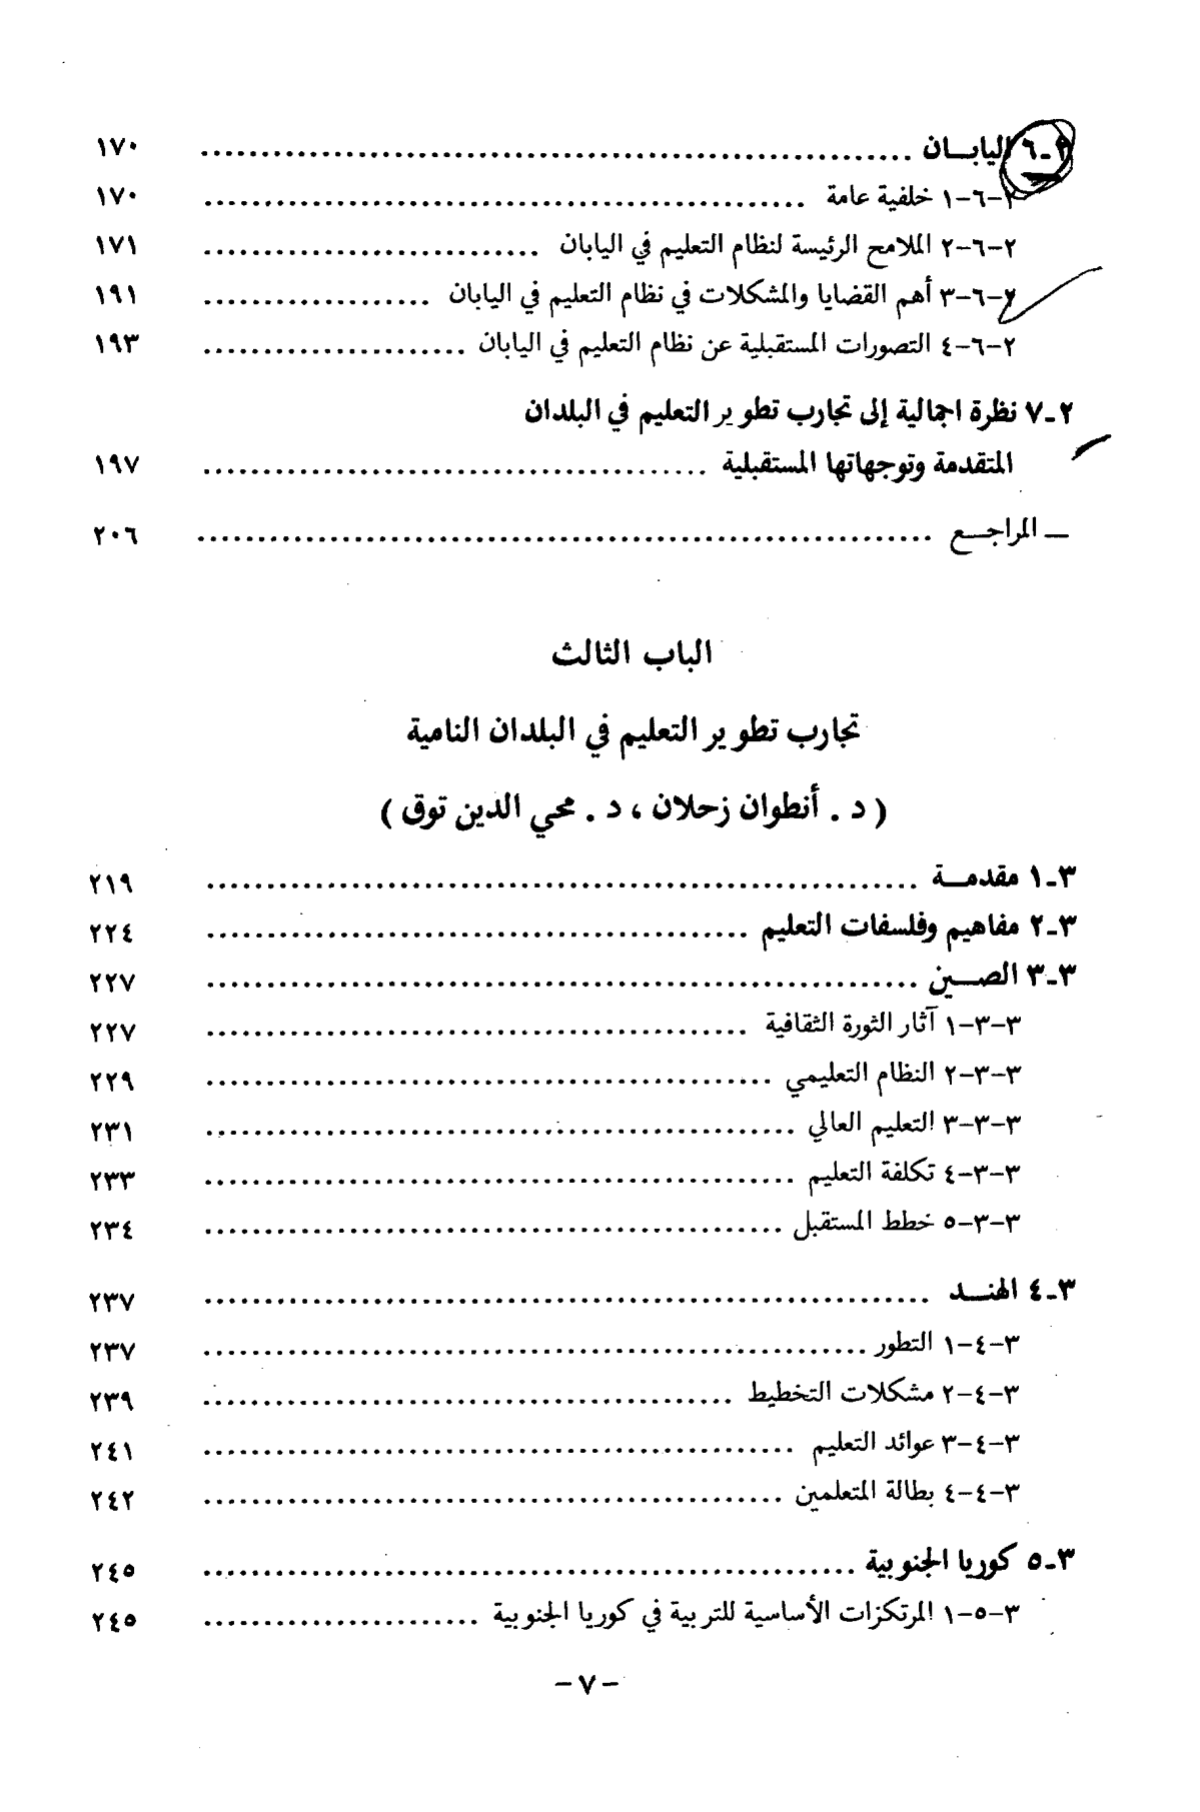 ٢ـ٦ اليابـــان ........................................................ ١٧٠
٢-٦-١ خلفية عامة ................................................ ١٧٠
٢-٦-٢ الملامح الرئيسة لنظام التعليم في اليابان ........................... ١٧١
٢-٦-٣ أهم القضايا والمشكلات في نظام التعليم في اليابان .................. ١٩١
٢-٦-٤ التصورات المستقبلية عن نظام التعليم في اليابان ..................... ١٩٣
٢ـ٧ نظرة اجمالية إلى تجارب تطوير التعليم في البلدان
المتقدمة وتوجهاتها المستقبلية ........................................ ١٩٧
— المراجـــع .......................................................... ٢٠٦
الباب الثالث
تجارب تطوير التعليم في البلدان النامية
( د . أنطوان زحلان ، د . محي الدين توق )
٣ـ١ مقدمـــة ........................................................ ٢١٩
٣ـ٢ مفاهيم وفلسفات التعليم ........................................... ٢٢٤
٣ـ٣ الصـــين ........................................................ ٢٢٧
٣-٣-١ آثار الثورة الثقافية ........................................... ٢٢٧
٣-٣-٢ النظام التعليمي ............................................. ٢٢٩
٣-٣-٣ التعليم العالي ............................................... ٢٣١
٣-٣-٤ تكلفة التعليم ............................................... ٢٣٣
٣-٣-٥ خطط المستقبل .............................................. ٢٣٤
٣ـ٤ الهنـــد ......................................................... ٢٣٧
٣-٤-١ التطور .................................................... ٢٣٧
٣-٤-٢ مشكلات التخطيط .......................................... ٢٣٩
٣-٤-٣ عوائد التعليم ............................................... ٢٤١
٣-٤-٤ بطالة المتعلمين .............................................. ٢٤٢
٣ـ٥ كوريا الجنوبية .................................................... ٢٤٥
٣-٥-١ المرتكزات الأساسية للتربية في كوريا الجنوبية ...................... ٢٤٥
- ٧ -